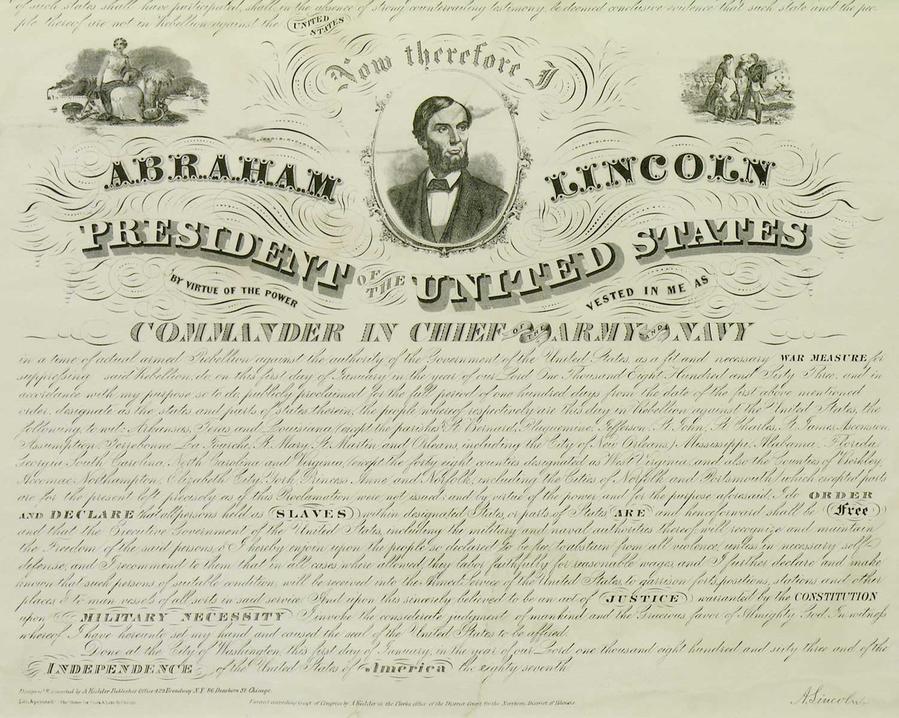 of such states shall have participated, shall, in the absence of strong countervailing testimony, be deemed conclusive evidence that such state and the peo-
ple thereof are not in Rebellion against the UNITED STATES
Now therefore I
ABRAHAM LINCOLN
PRESIDENT OF THE UNITED STATES
BY VIRTUE OF THE POWER VESTED IN ME AS
COMMANDER IN CHIEF OF THE ARMY AND NAVY
in a time of actual armed Rebellion against the authority of the Government of the United States, as a fit and necessary WAR MEASURE for
suppressing said Rebellion, do, on this first day of January in the year of our Lord One Thousand Eight Hundred and Sixty Three, and in
accordance with my purpose so to do, publicly proclaimed for the full period of one hundred days from the date of the first above mentioned
order, designate as the states and parts of States therein, the people whereof respectively are this day in Rebellion against the United States, the
following, to wit: Arkansas, Texas and Louisiana, (except the parishes of St. Bernard, Plaquemine, Jefferson, St. John, St. Charles, St. James, Ascension,
Assumption, Terrebonne, La Fourche, St. Mary, St. Martin and Orleans, including the City of New Orleans,) Mississippi, Alabama, Florida,
Georgia, South Carolina, North Carolina and Virginia, (except the forty eight counties designated as West Virginia, and also the Counties of Berkley,
Accomac, Northampton, Elizabeth City, York, Princess Anne and Norfolk, including the Cities of Norfolk and Portsmouth,) which excepted parts
are for the present left precisely as if this Proclamation were not issued; and by virtue of the power and for the purpose aforesaid, I do ORDER
AND DECLARE that all persons held as SLAVES within designated States, or parts of States ARE and henceforward shall be Free
and that the Executive Government of the United States, including the military and naval authorities thereof will recognize and maintain
the Freedom of the said persons, & I hereby enjoin upon the people so declared to be free, to abstain from all violence, unless in necessary self-
defense, and I recommend to them that in all cases where allowed they labor faithfully for reasonable wages, and I further declare and make
known that such persons of suitable condition will be received into the Armed service of the United States, to garrison forts, positions, stations and other
places, & to man vessels of all sorts in said service. And upon this sincerely believed to be an act of JUSTICE warranted by the CONSTITUTION
upon MILITARY NECESSITY I invoke the considerate judgment of mankind and the Gracious favor of Almighty God. In witness
whereof I have hereunto set my hand and caused the seal of the United States to be affixed.
Done at the City of Washington, this first day of January, in the year of our Lord, one thousand eight hundred and sixty three and of the
INDEPENDENCE of the United States of America the eighty seventh
Designed & executed by A Kidder Publisher Office 429 Broadway N.Y. 86 Dearborn St Chicago.
Entered according to act of Congress by A Kidder in the Clerks office of the District Court for the Northern District of Illinois.
A. Lincoln